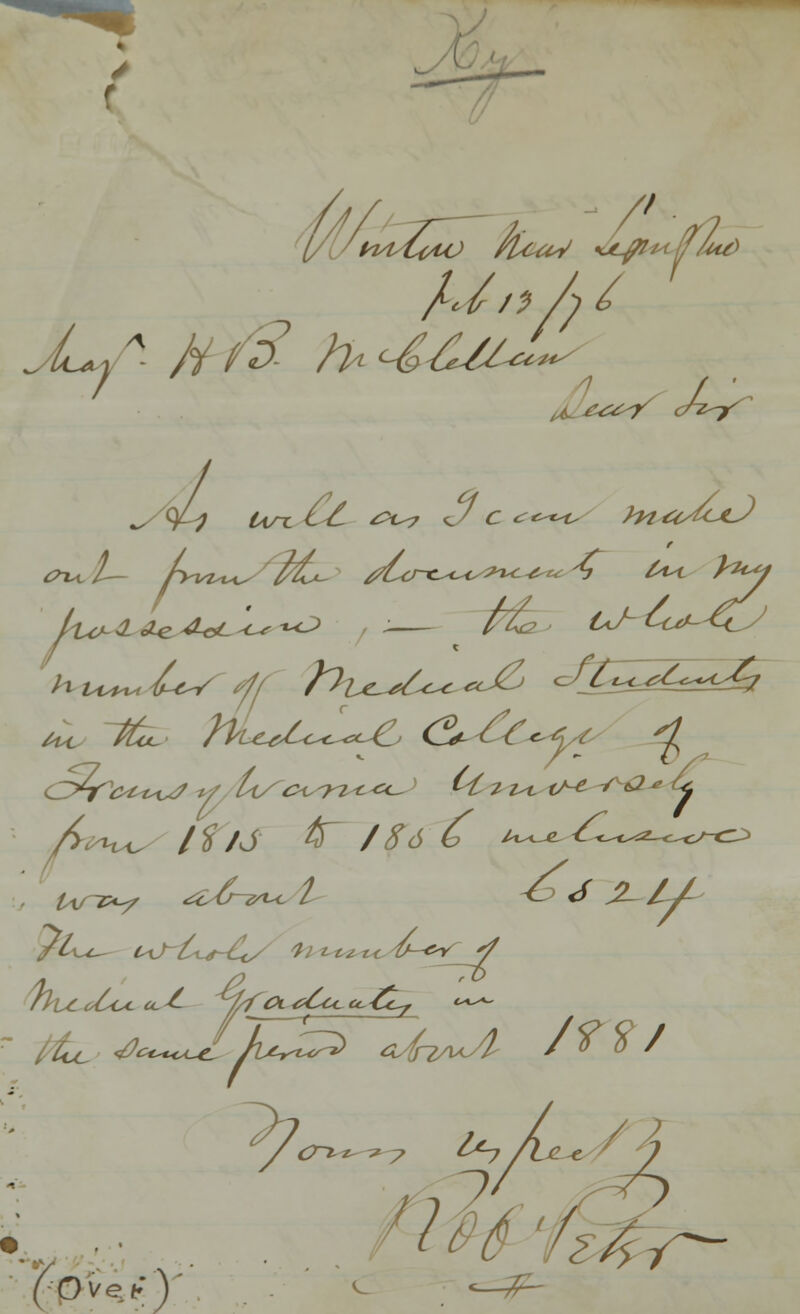 Ky
Winton Near Lexington
Feb 13/76
Maj. H B. McClellan
Dear Sir
As well as I can make
out from the documents in my
possession, — the whole
number of Medical Students
in the Medical College of
Transylvania University
from 1815 to 1856 inclusive
was about 6524
The whole number of
Medical Graduates in
the same period about 1881
Yours respectly
Rob Peter
(Over)